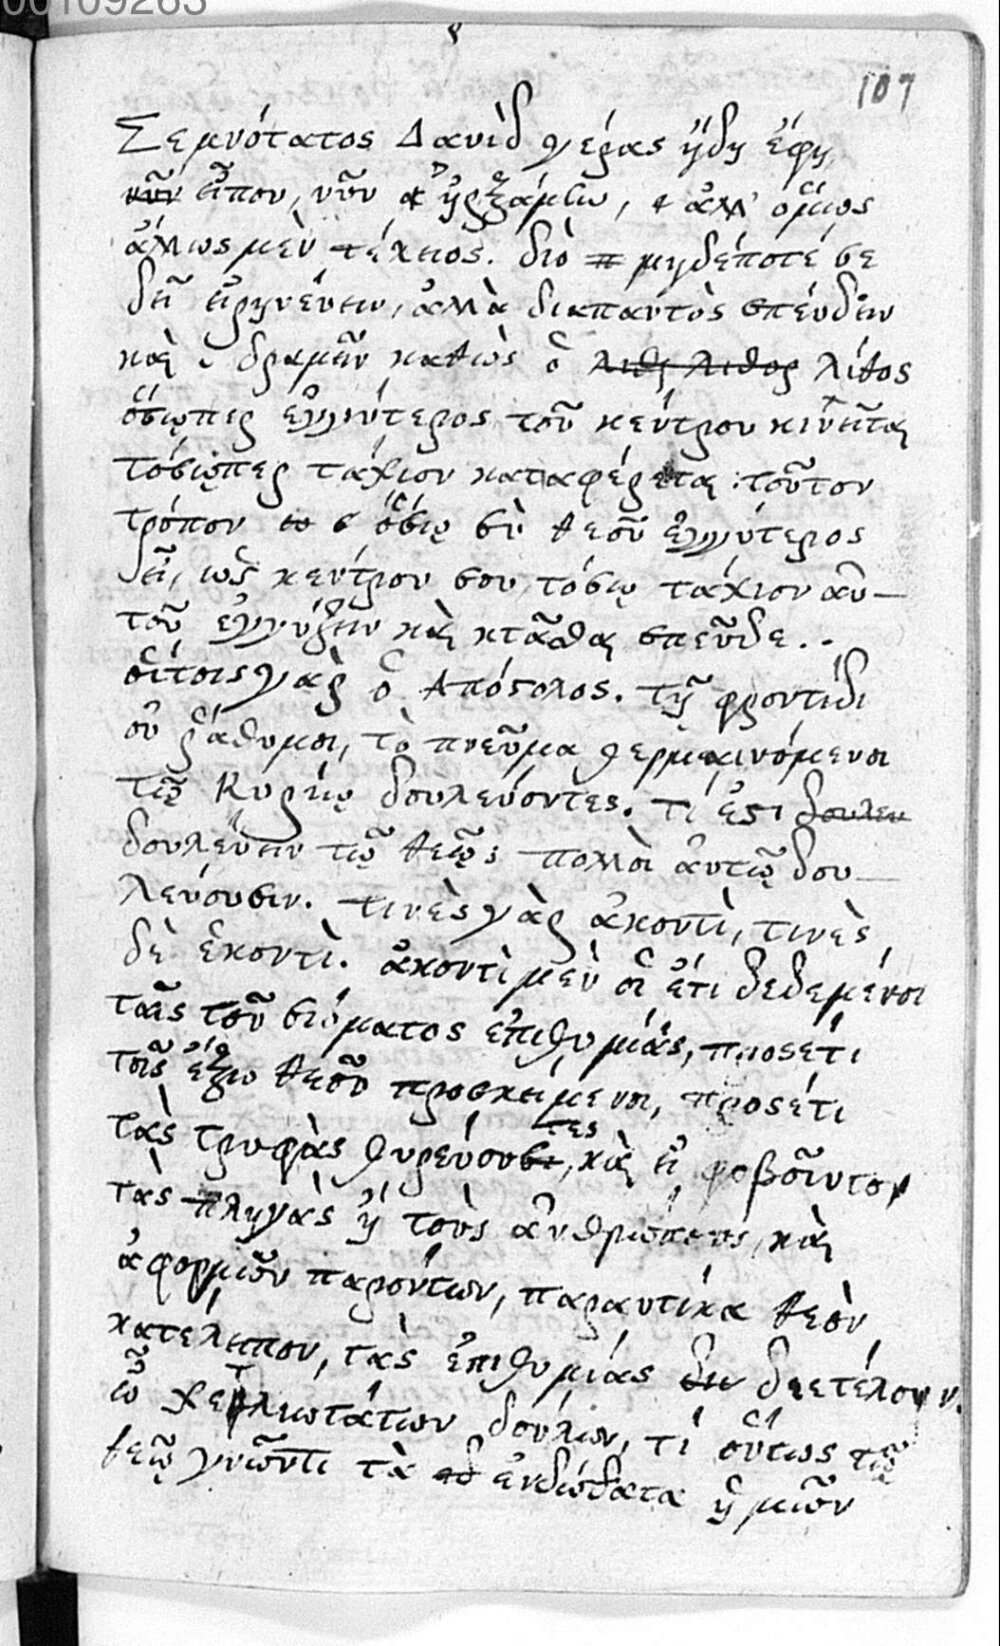 00109263
107
Σεμνότατος Δαυὶδ γέρας ἤδη ἔφη
νῦν εἶπον, νῦν ἠρξάμην, ἀλλ' ὅμως
ἄλλως μὲν τέλειος. διὸ μηδέποτέ σε
δεῖ εἰρηνεύειν, ἀλλὰ διαπαντὸς σπεύδειν
καὶ δραμεῖν καθὼς ὁ λιθς λιθος λίθος
ὅσῳπερ ἐγγύτερος τοῦ κέντρου κινεῖται
τόσῳπερ τάχιον καταφέρεται· τοῦτον
τρόπον ὅσῳ σὺ θεοῦ ἐγγύτερος
εἶ, ὡς κέντρου σου, τόσῳ τάχιον αὐ-
τοῦ ἐγγίζειν καὶ κτᾶσθαι σπεῦδε..
οὕτοις γὰρ ὁ Ἀπόστολος. τῇ φροντίδι
οὐ ῥάθυμοι, τὸ πνεῦμα θερμαινόμενοι
τῷ Κυρίῳ δουλεύοντες. τί ἐστι δουλευ
δουλεύειν τῷ θεῷ; πολλοὶ αὐτῷ δου-
λεύουσιν. τινὲς γὰρ ἀκοντὶ, τινὲς
δὲ ἑκοντὶ. ἀκοντὶ μὲν οἱ ἔτι δεδεμένοι
ταῖς τοῦ σώματος ἐπιθυμίαις, προσέτι
τοῖς ἔξω θεοῦ προσκείμενοι, προσέτι
τὰς τρυφὰς θηρεύοντες, καὶ εἰ φοβοῖντο
τὰς πληγὰς ἢ τοὺς ἀνθρώπους, καὶ
ἀφορμῶν παρόντων, παραυτίκα θεὸν
κατέλιπον, τὰς ἐπιθυμίας δι διετέλουν.
ὦ δούλων, τί οὕτως τῷ
θεῷ γνῶντι τὰ ἐνδώθατα ἡμῶν